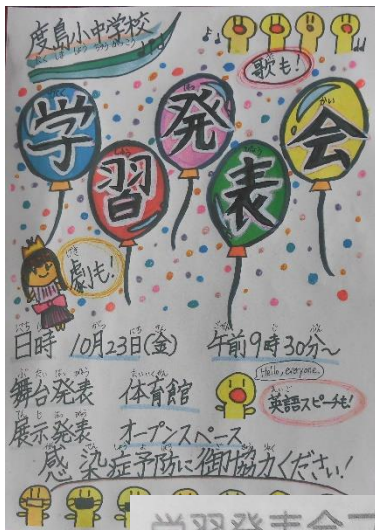 度島小中学校
歌も!
学習発表会
劇も!
日時 10月23日(金) 午前9時30分~
舞台発表 体育館
Hello, everyone.
英語スピーチも!
展示発表 オープンスペース
感染症予防に御協力ください!
学習発表会